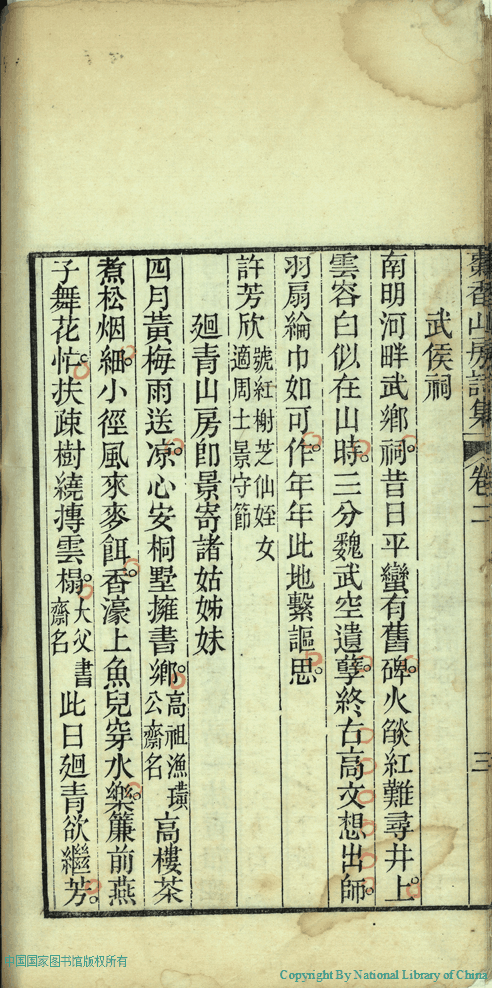 香山房詩集 卷二 三
武侯祠
南明河畔武鄉祠。昔日平蠻有舊碑。火燄紅難尋井上。
雲容白似在山時。三分魏武空遺孽。終右高文想出師。
羽扇綸巾如可作。年年此地繫謳思。
許芳欣 號紅榭芝仙姪女
適周士景守節
廻青山房卽景寄諸姑姊妹
四月黃梅雨送凉。心安桐墅擁書鄉。高祖漁璜公齋名高樓茶
煮松烟細。小徑風來麥餌香。濠上魚兒穿水樂。簾前燕
子舞花忙。扶疎樹繞摶雲榻。大父書齋名此日廻青欲繼芳。
中国国家图书馆版权所有
Copyright By National Library of China